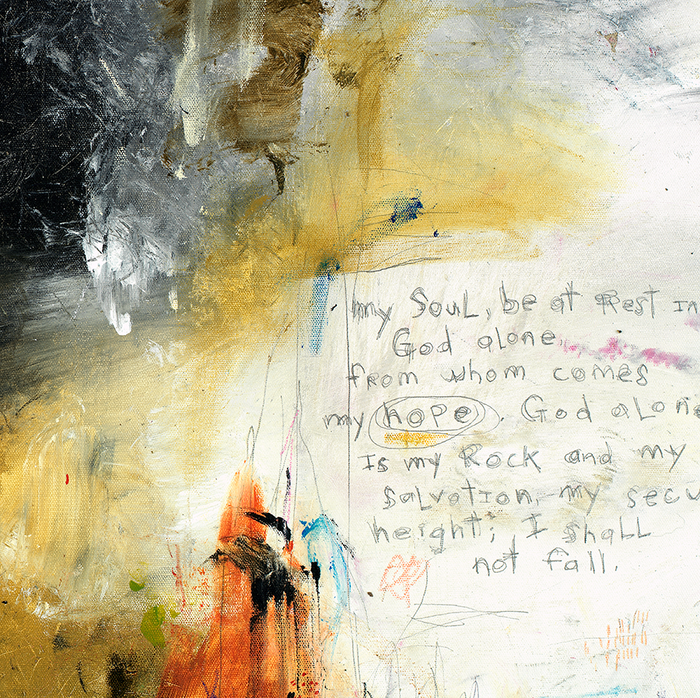 my SouL, be at Rest in
God alone,
from whom comes
my hope. God aLone
Is my Rock and my
Salvation, my secu
height; I shall
not fall.